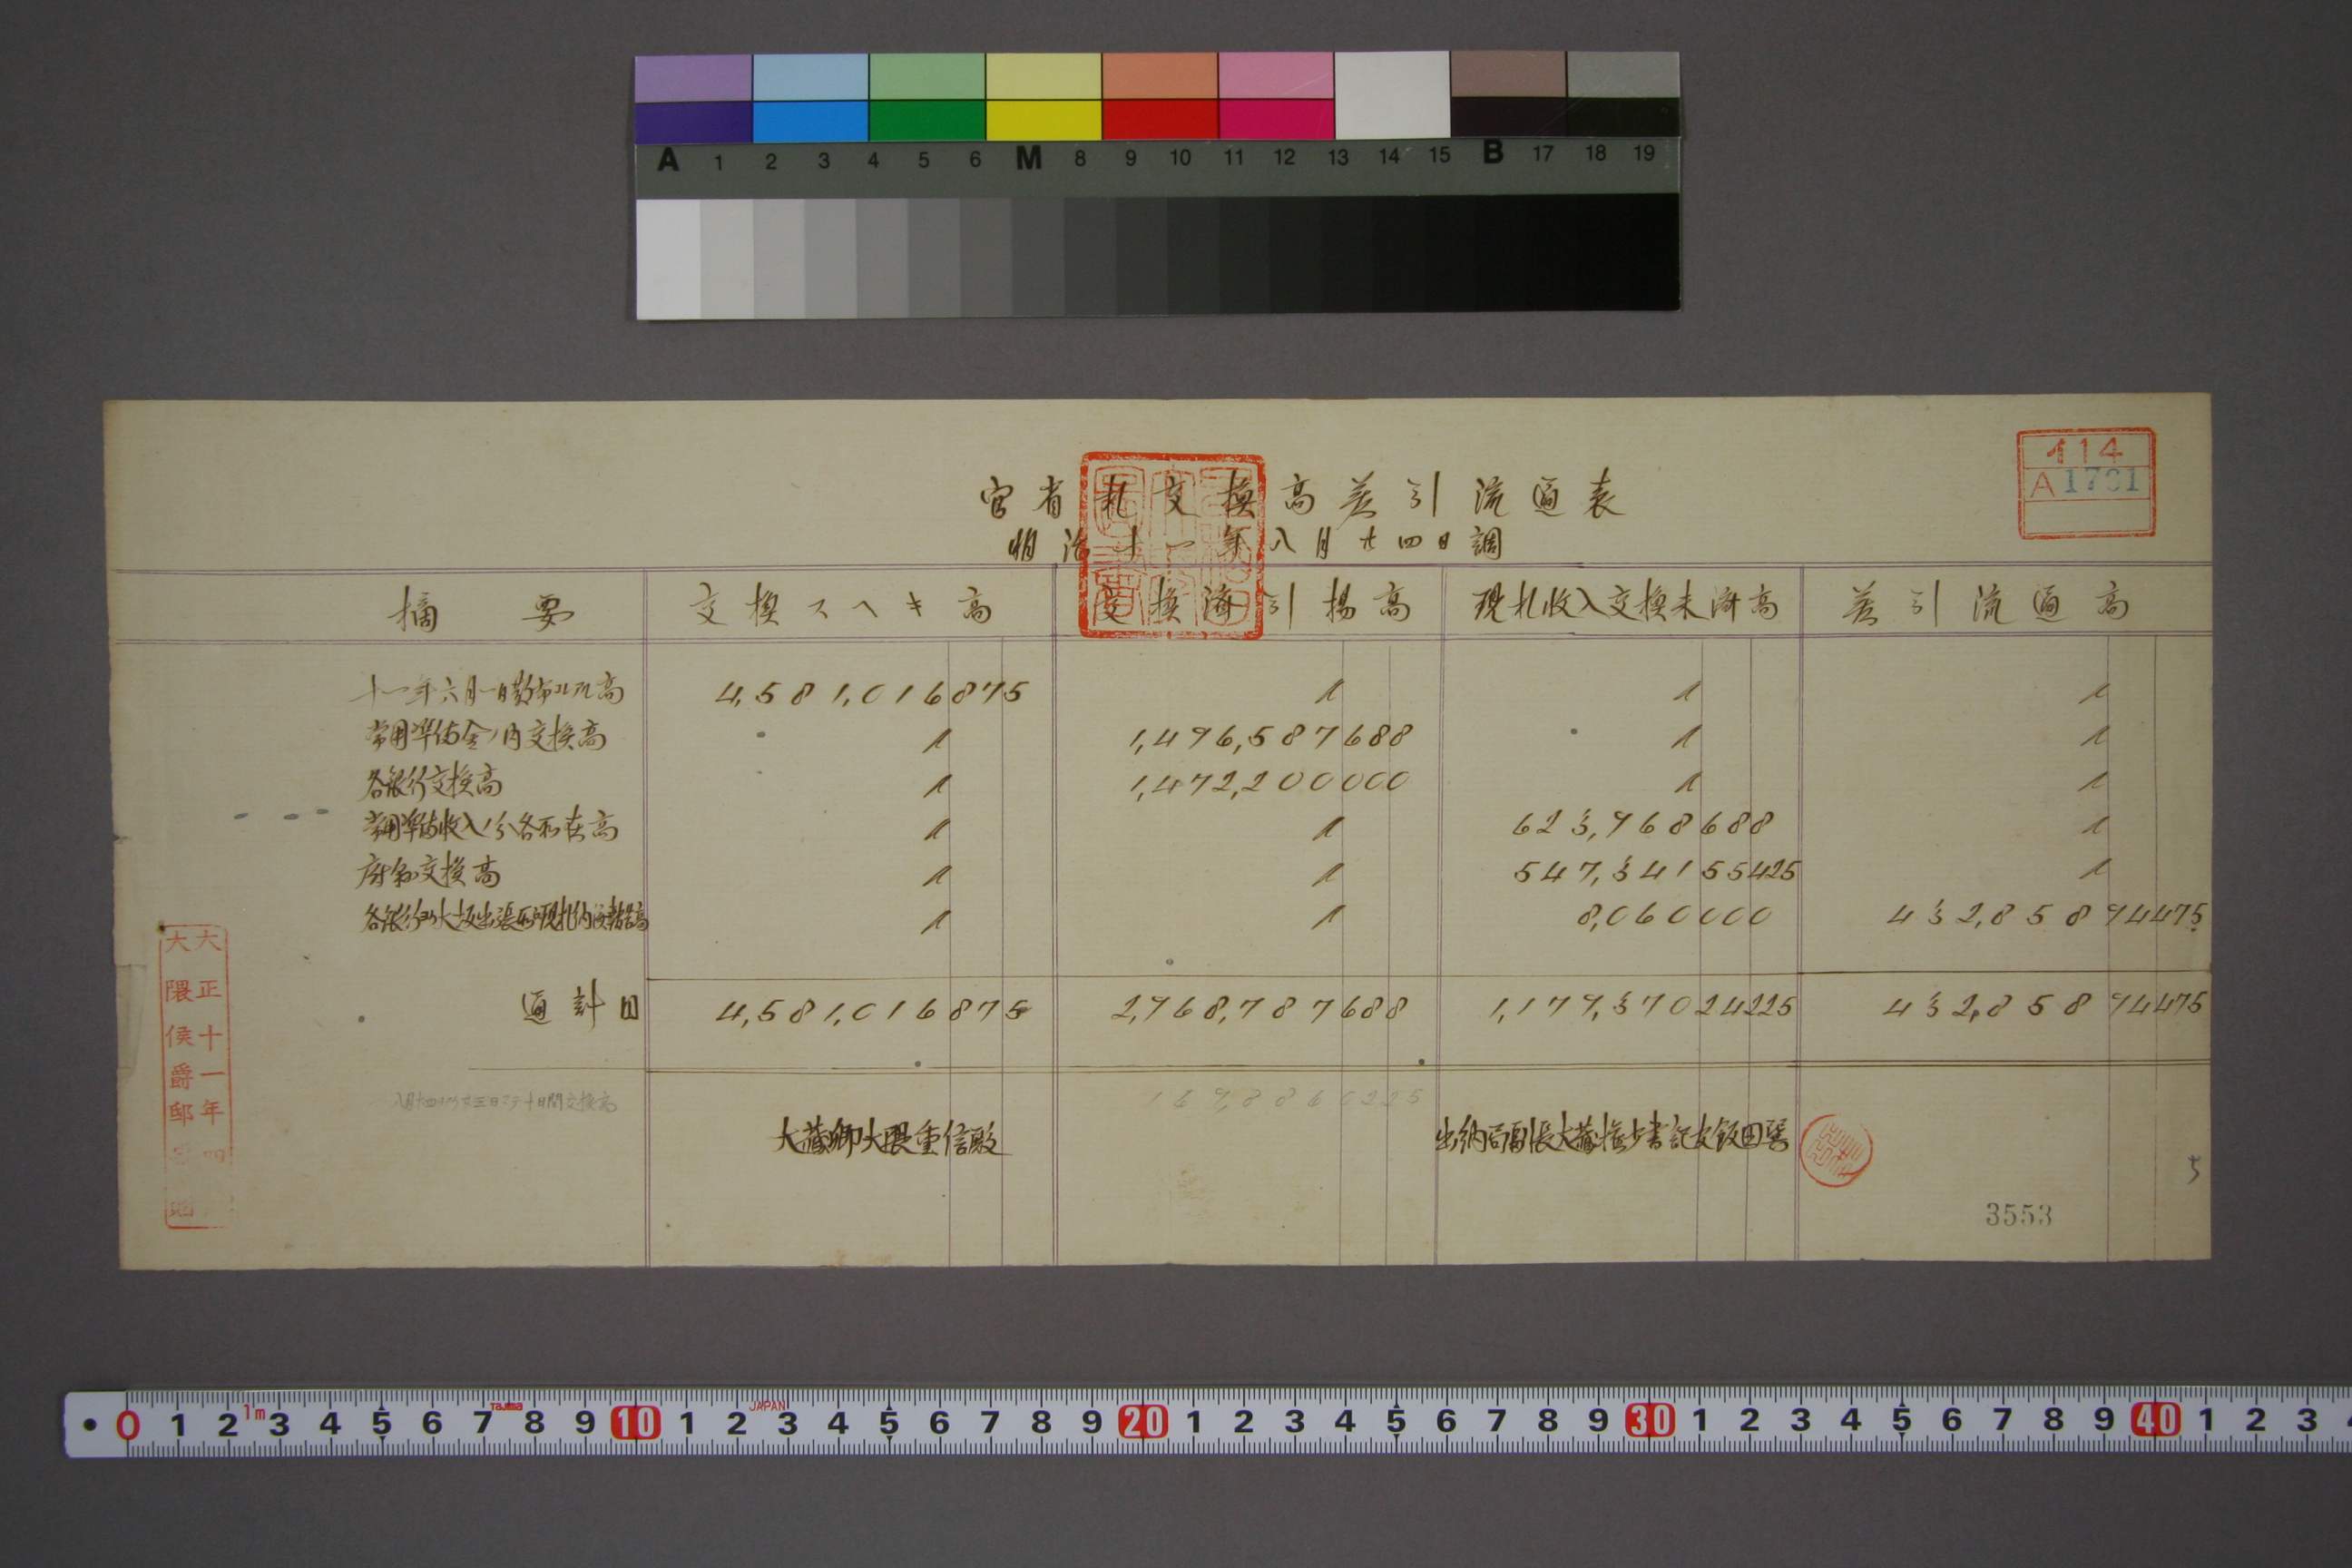 A 1 2 3 4 5 6 M 8 9 10 11 12 13 14 15 B 17 18 19
官省札交換高差引流通表
明治十一年八月廿四日調
414
A 1701
摘要 交換スヘキ高 交換済引揚高 現札収入交換未済高 差引流通高
十一年六月一日 高 4,581,016875
常用準備金ノ内交換高 1,496,587688
各銀行交換高 1,472,200000
常用準備収入ノ分各所在高 623,968688
府県交換高 547,34155425
各銀行 大坂出張所現札納 高 8,060000 432,85894475
通計 4,581,016875 2,968,787688 1,179,37024225 432,85894475
八月十四日 廿三日マテ十日間交換高 169,8860225
大蔵卿大隈重信殿
出納局副長大蔵権少書記官飯田巽
大正十一年四
大隈侯爵邸
3553
5
0 1 2 1m 3 4 5 6 7 Tajima 8 9 10 1 2 JAPAN 3 4 5 6 7 8 9 20 1 2 3 4 5 6 7 8 9 30 1 2 3 4 5 6 7 8 9 40 1 2 3